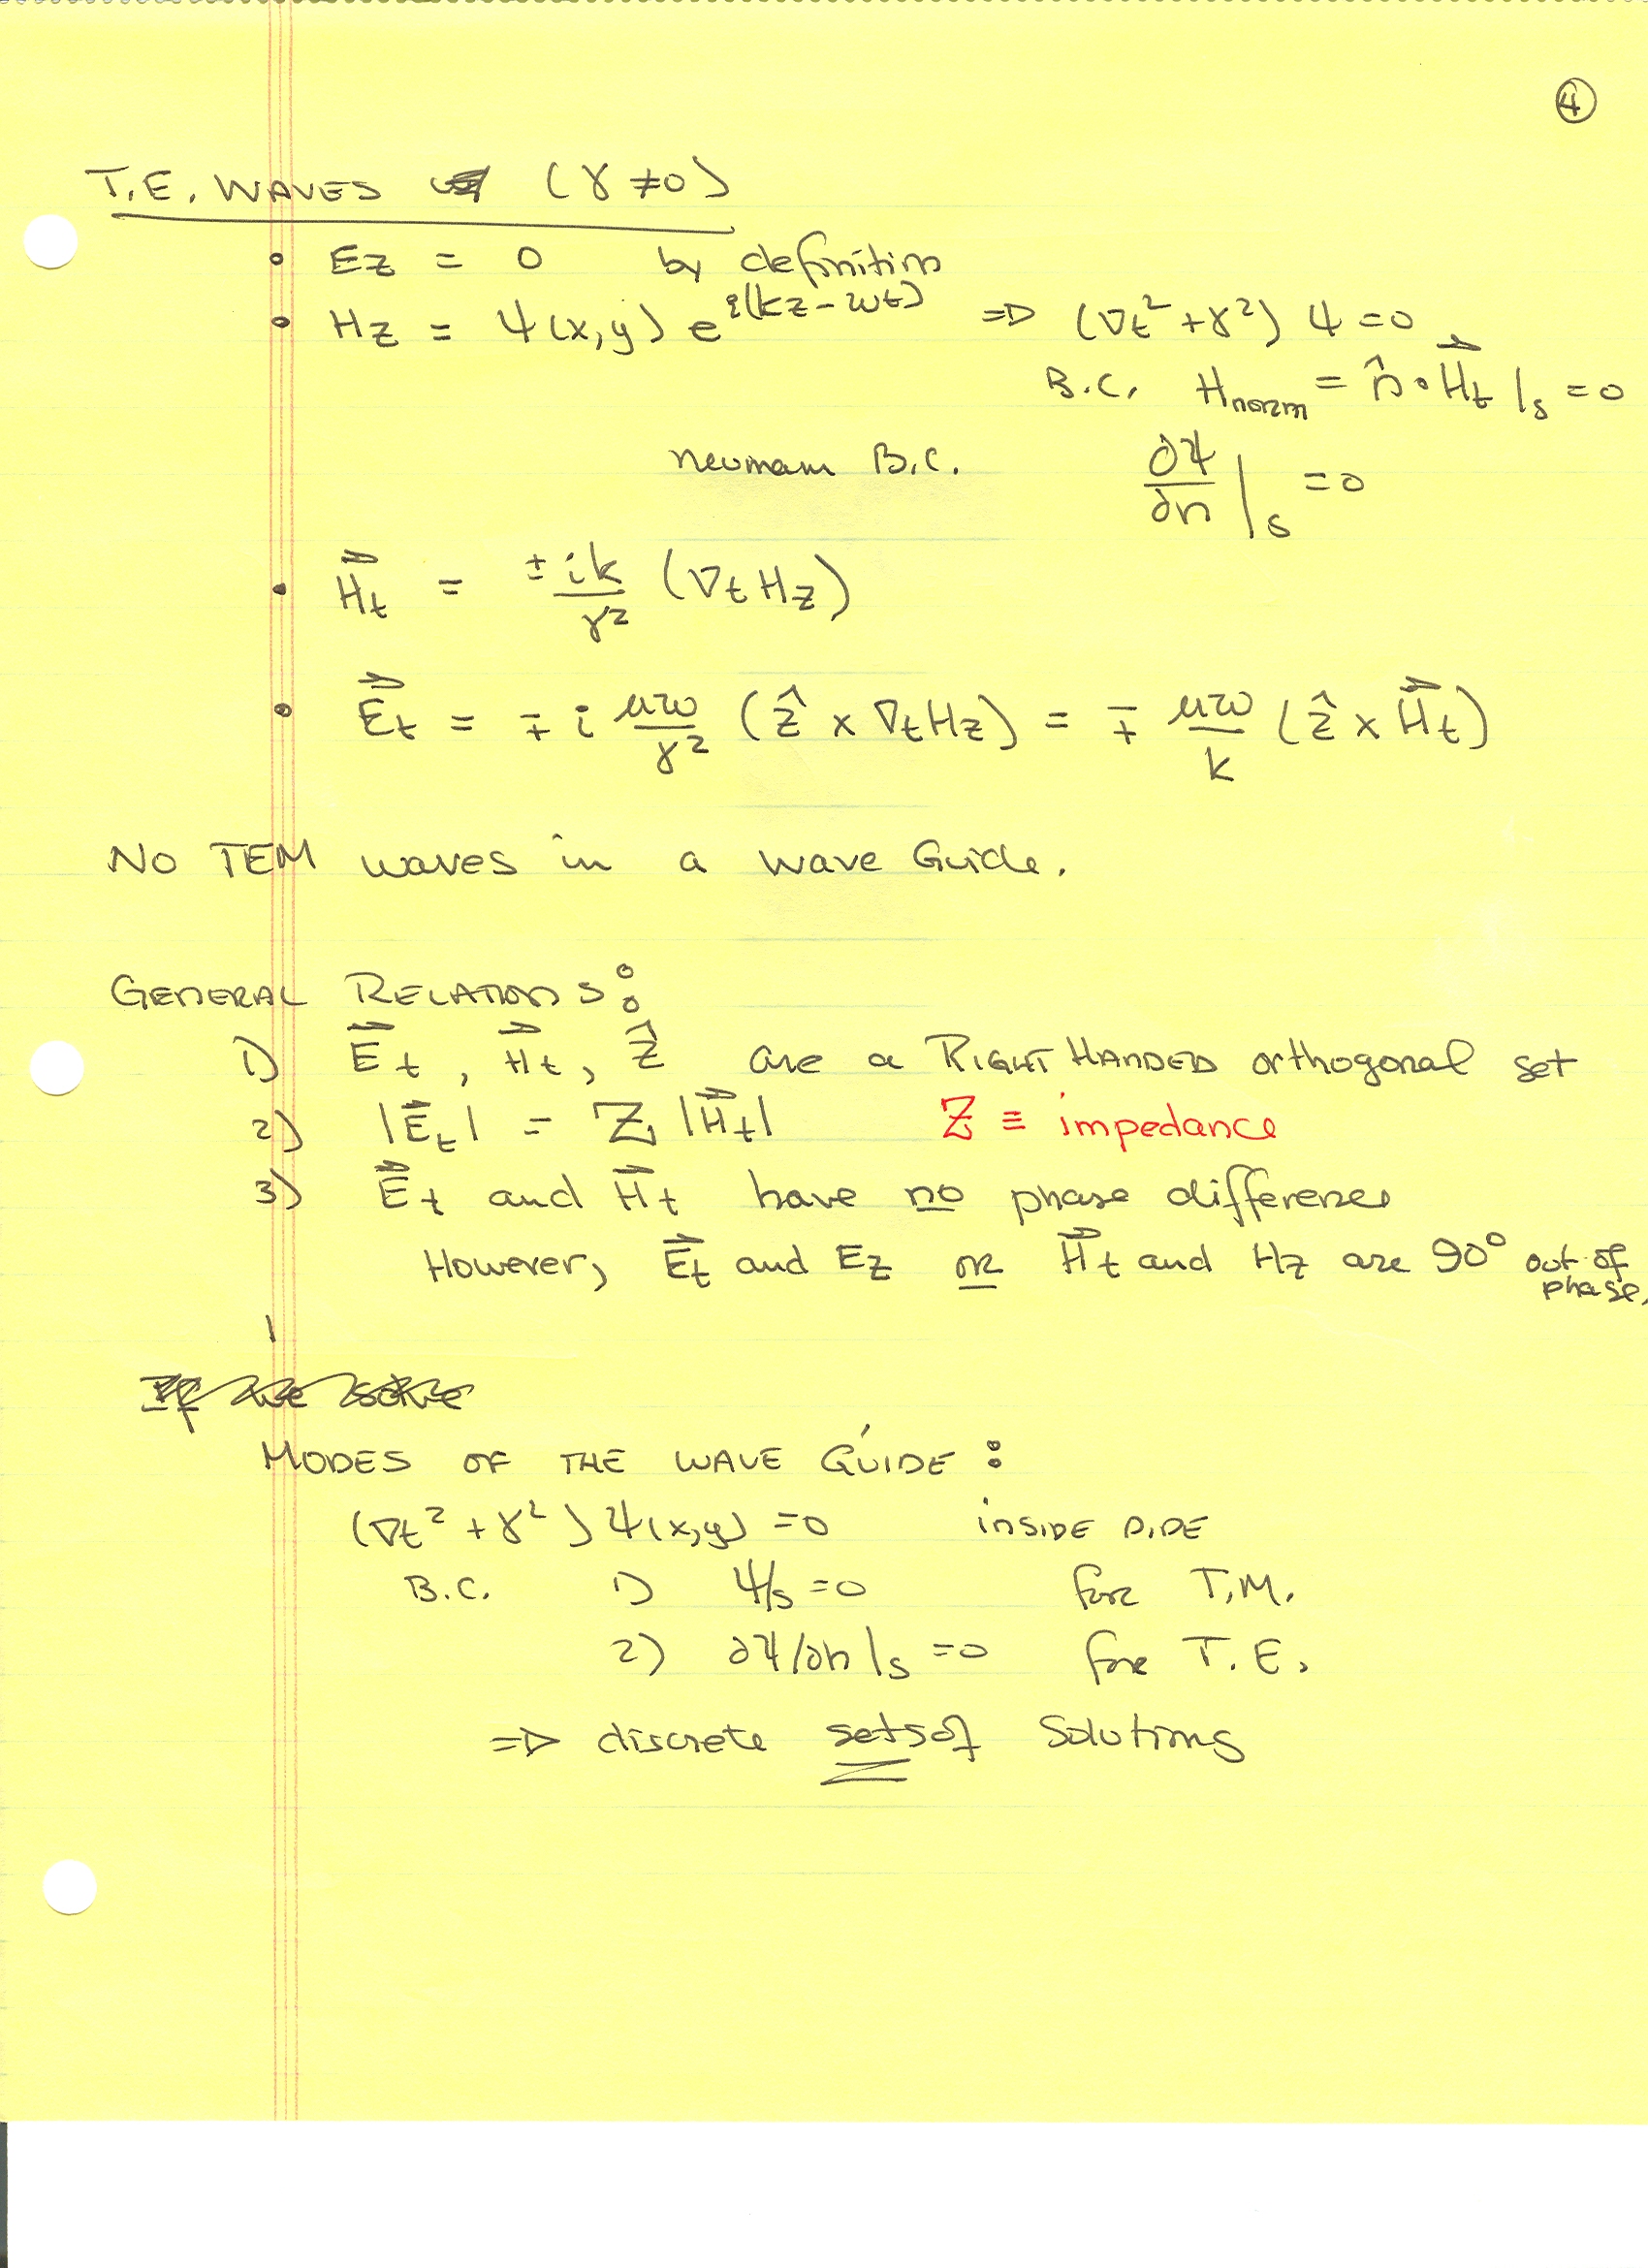 4
T.E. WAVES (γ ≠ 0)
• Ez = 0 by definition
• Hz = Ψ(x,y) e^{i(kz-ωt)} ⇒ (∇t² + γ²) Ψ = 0
B.C. Hnorm = n̂ • H⃗t |s = 0
neumann B.C. ∂Ψ/∂n |s = 0
• H⃗t = ± ik/γ² (∇t Hz)
• E⃗t = ∓ i μω/γ² (ẑ × ∇t Hz) = ∓ μω/k (ẑ × H⃗t)
No TEM waves in a wave Guide.
GENERAL RELATIONS:
1) E⃗t, H⃗t, ẑ are a RIGHT HANDED orthogonal set
2) |E⃗t| = Z |H⃗t| Z ≡ impedance
3) E⃗t and H⃗t have no phase difference
However, E⃗t and Ez or H⃗t and Hz are 90° out of phase.
If we solve
MODES OF THE WAVE GUIDE:
(∇t² + γ²) Ψ(x,y) = 0 INSIDE PIPE
B.C. 1) Ψ|s = 0 for T.M.
2) ∂Ψ/∂n |s = 0 for T.E.
⇒ discrete sets of solutions